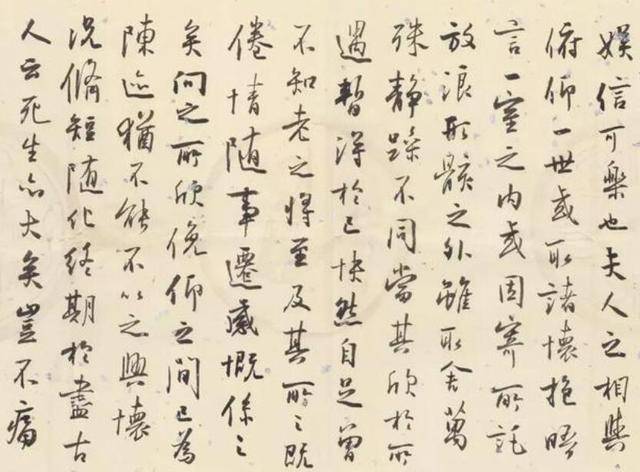 娱信可樂也夫人之相與
俯仰一世或取諸懷抱晤
言一室之内或因寄所託
放浪形骸之外雖取舍萬
殊静躁不同當其欣於所
遇暫得於己快然自足曾
不知老之將至及其所之既
倦情随事遷感慨係之
矣向之所欣俛仰之間已為
陳迹猶不能不以之興懷
況脩短随化終期於盡古
人云死生亦大矣豈不痛